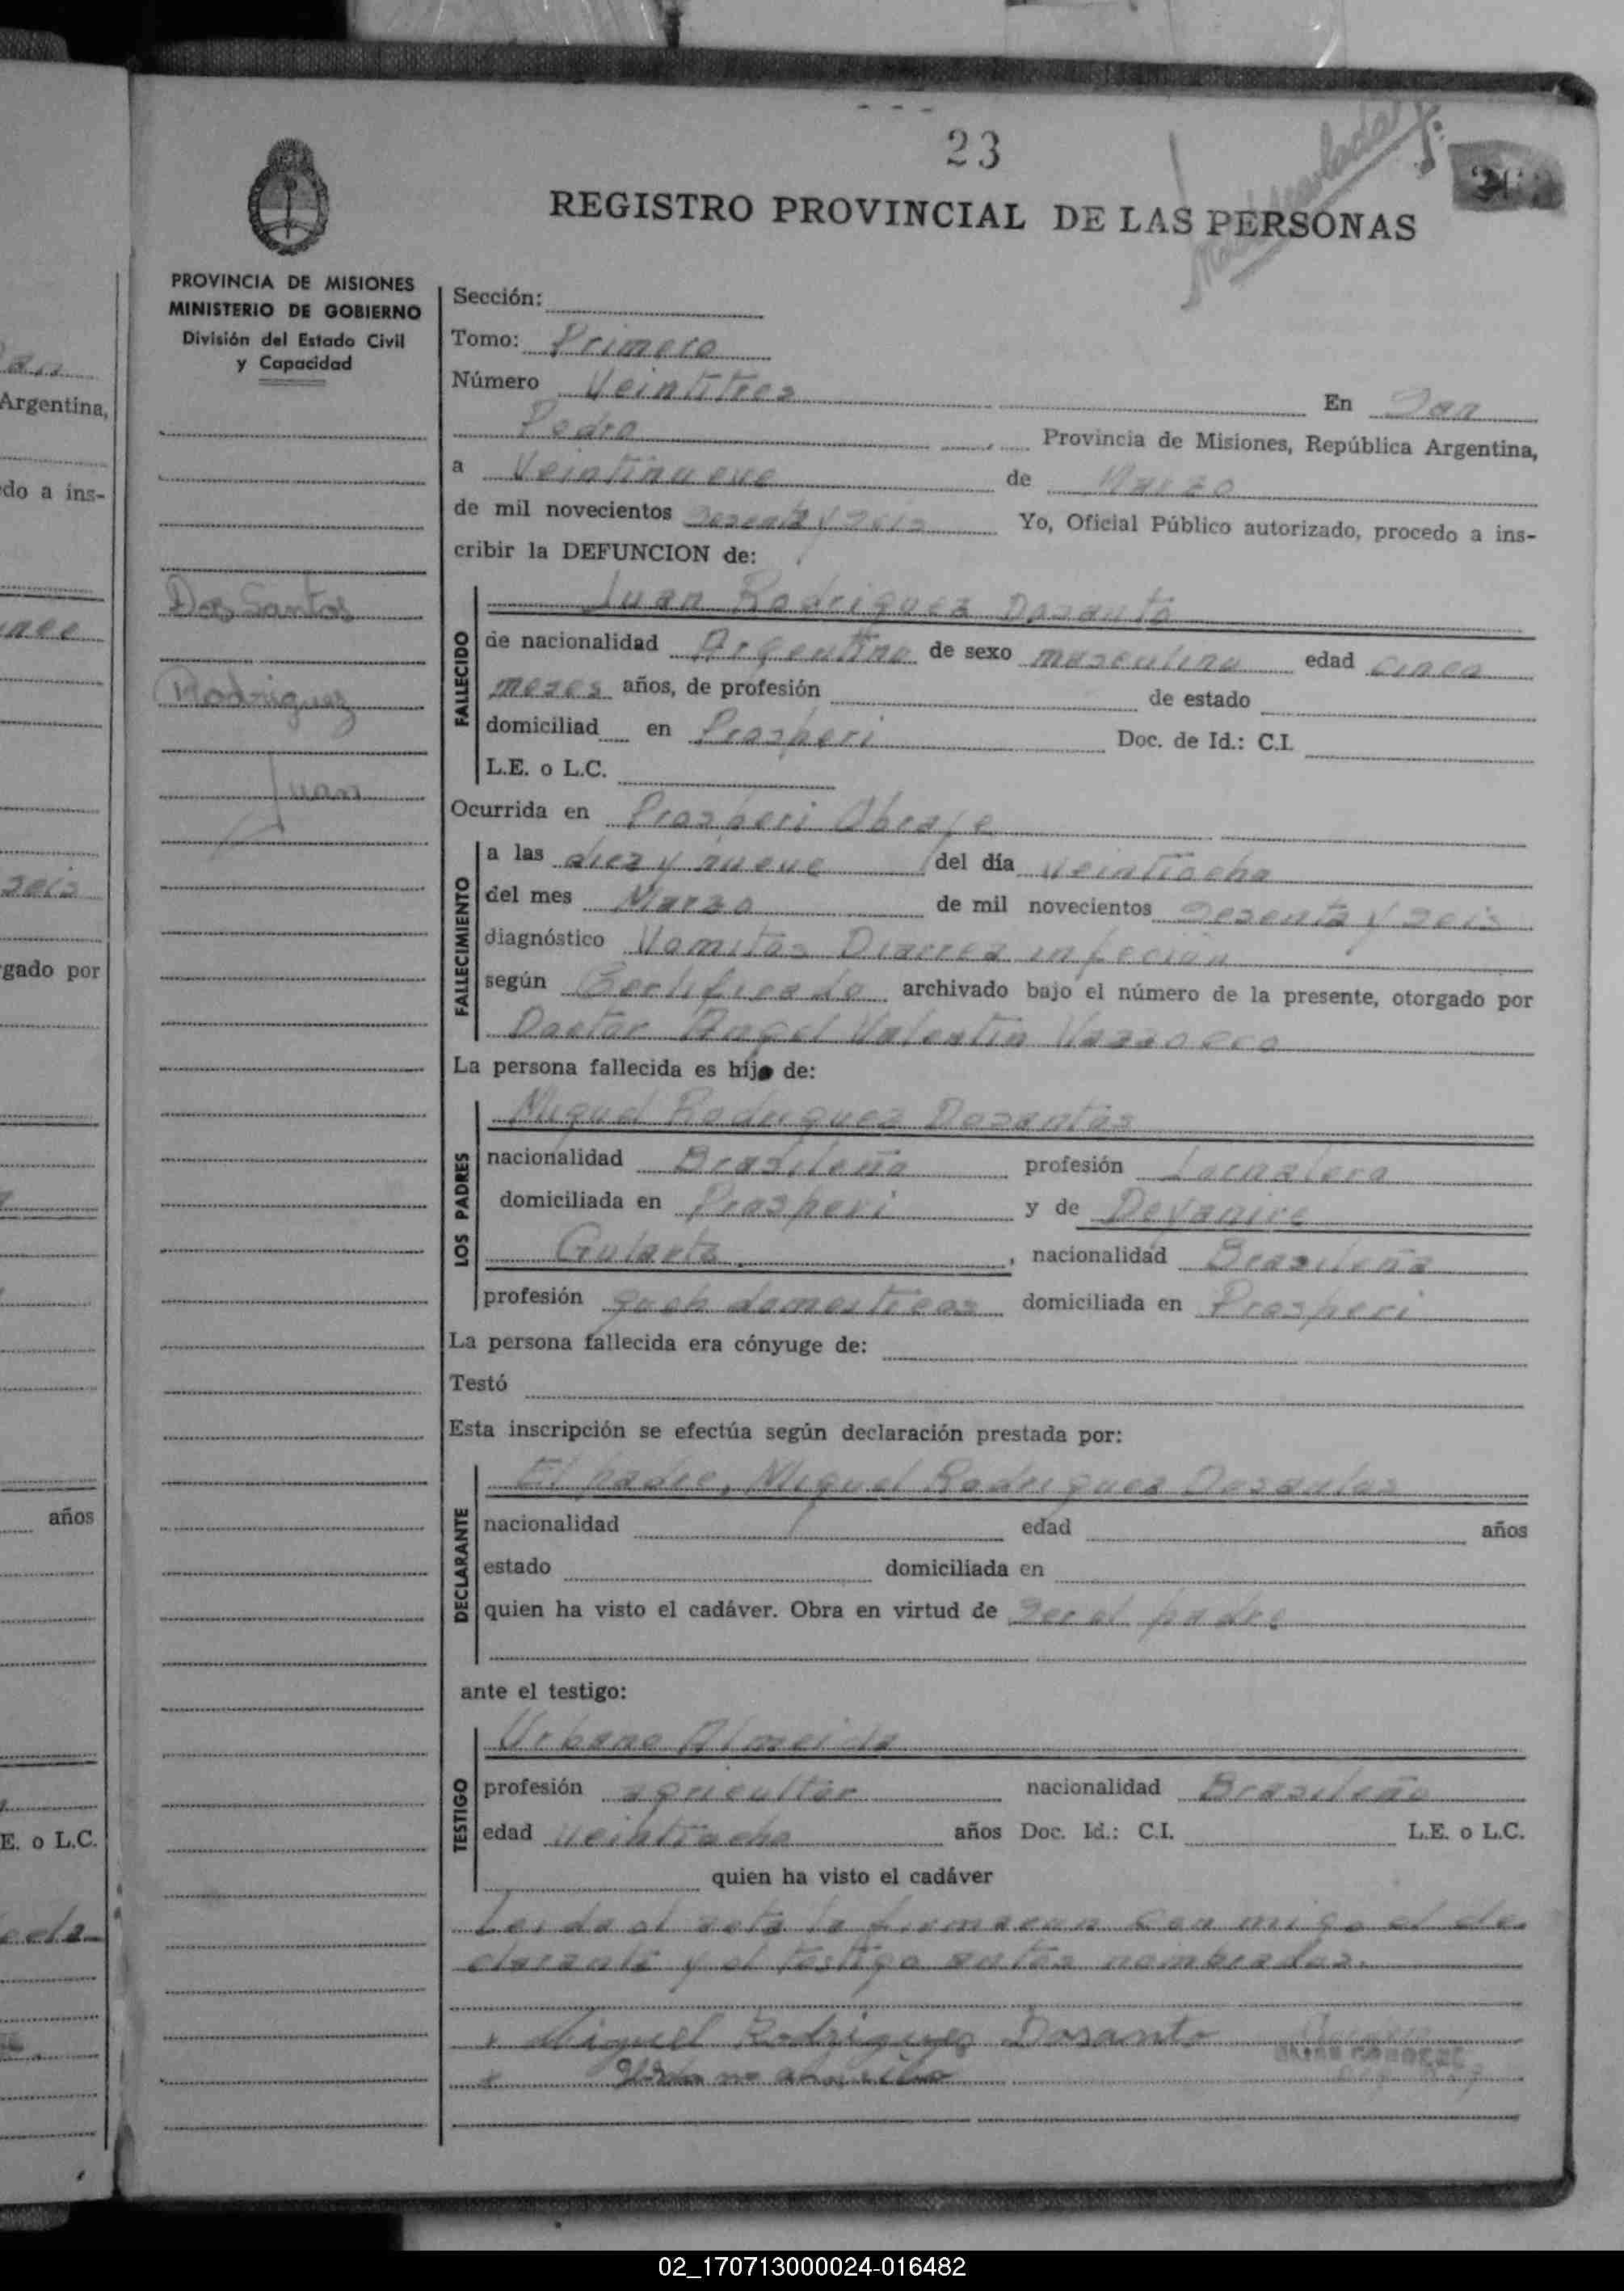 23
REGISTRO PROVINCIAL DE LAS PERSONAS
PROVINCIA DE MISIONES
MINISTERIO DE GOBIERNO
División del Estado Civil
y Capacidad
Sección:
Tomo: Primero
Número Veintitres En San
Pedro Provincia de Misiones, República Argentina,
a Veintinueve de Marzo
de mil novecientos Sesenta y Seis Yo, Oficial Público autorizado, procedo a ins-
cribir la DEFUNCION de:
Dos Santos
Rodriguez
Juan
FALLECIDO
Juan Rodriguez Dosanto
de nacionalidad Argentino de sexo masculino edad cinco
meses años, de profesión de estado
domiciliad en Prosperi Doc. de Id.: C.I.
L.E. o L.C.
Ocurrida en Prosperi Obraje
FALLECIMIENTO
a las diez y nueve del día veintiocho
del mes Marzo de mil novecientos Sesenta y Seis
diagnóstico Vomitos Diarrea infecion
según Certificado archivado bajo el número de la presente, otorgado por
Doctor Angel Valentin
La persona fallecida es hijo de:
LOS PADRES
Miguel Rodriguez Dosantos
nacionalidad Brasileño profesión Jornalero
domiciliada en Prosperi y de Deyanire
Gularte, nacionalidad Brasileña
profesión domesticos domiciliada en Prosperi
La persona fallecida era cónyuge de:
Testó
Esta inscripción se efectúa según declaración prestada por:
DECLARANTE
El padre, Miguel Rodriguez Dosantos
nacionalidad edad años
estado domiciliada en
quien ha visto el cadáver. Obra en virtud de ser el padre
ante el testigo:
TESTIGO
Urbano Almeida
profesión agricultor nacionalidad Brasileño
edad Veintiocho años Doc. Id.: C.I. L.E. o L.C.
quien ha visto el cadáver
Leida el acta la firmaron con migo el de-
clarante y el testigo antes nombrados.
Miguel Rodriguez Dosanto
Argentina,
do a ins-
seis
gado por
años
E. o L.C.
02_170713000024-016482